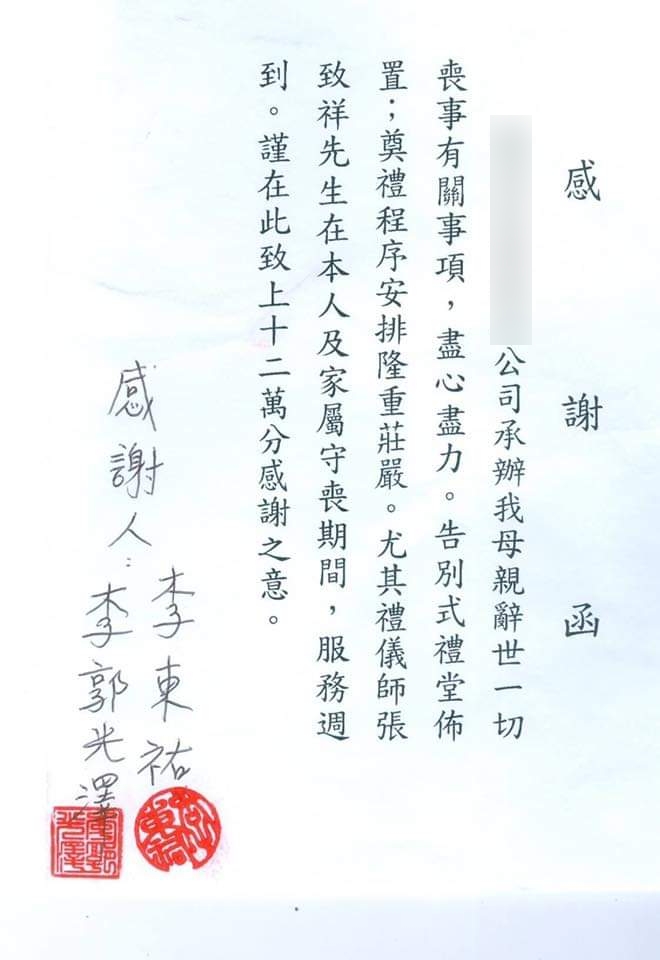 感謝函
公司承辦我母親辭世一切
喪事有關事項，盡心盡力。告別式禮堂佈
置；奠禮程序安排隆重莊嚴。尤其禮儀師張
致祥先生在本人及家屬守喪期間，服務週
到。謹在此致上十二萬分感謝之意。
感謝人：李東祐
李郭光澤